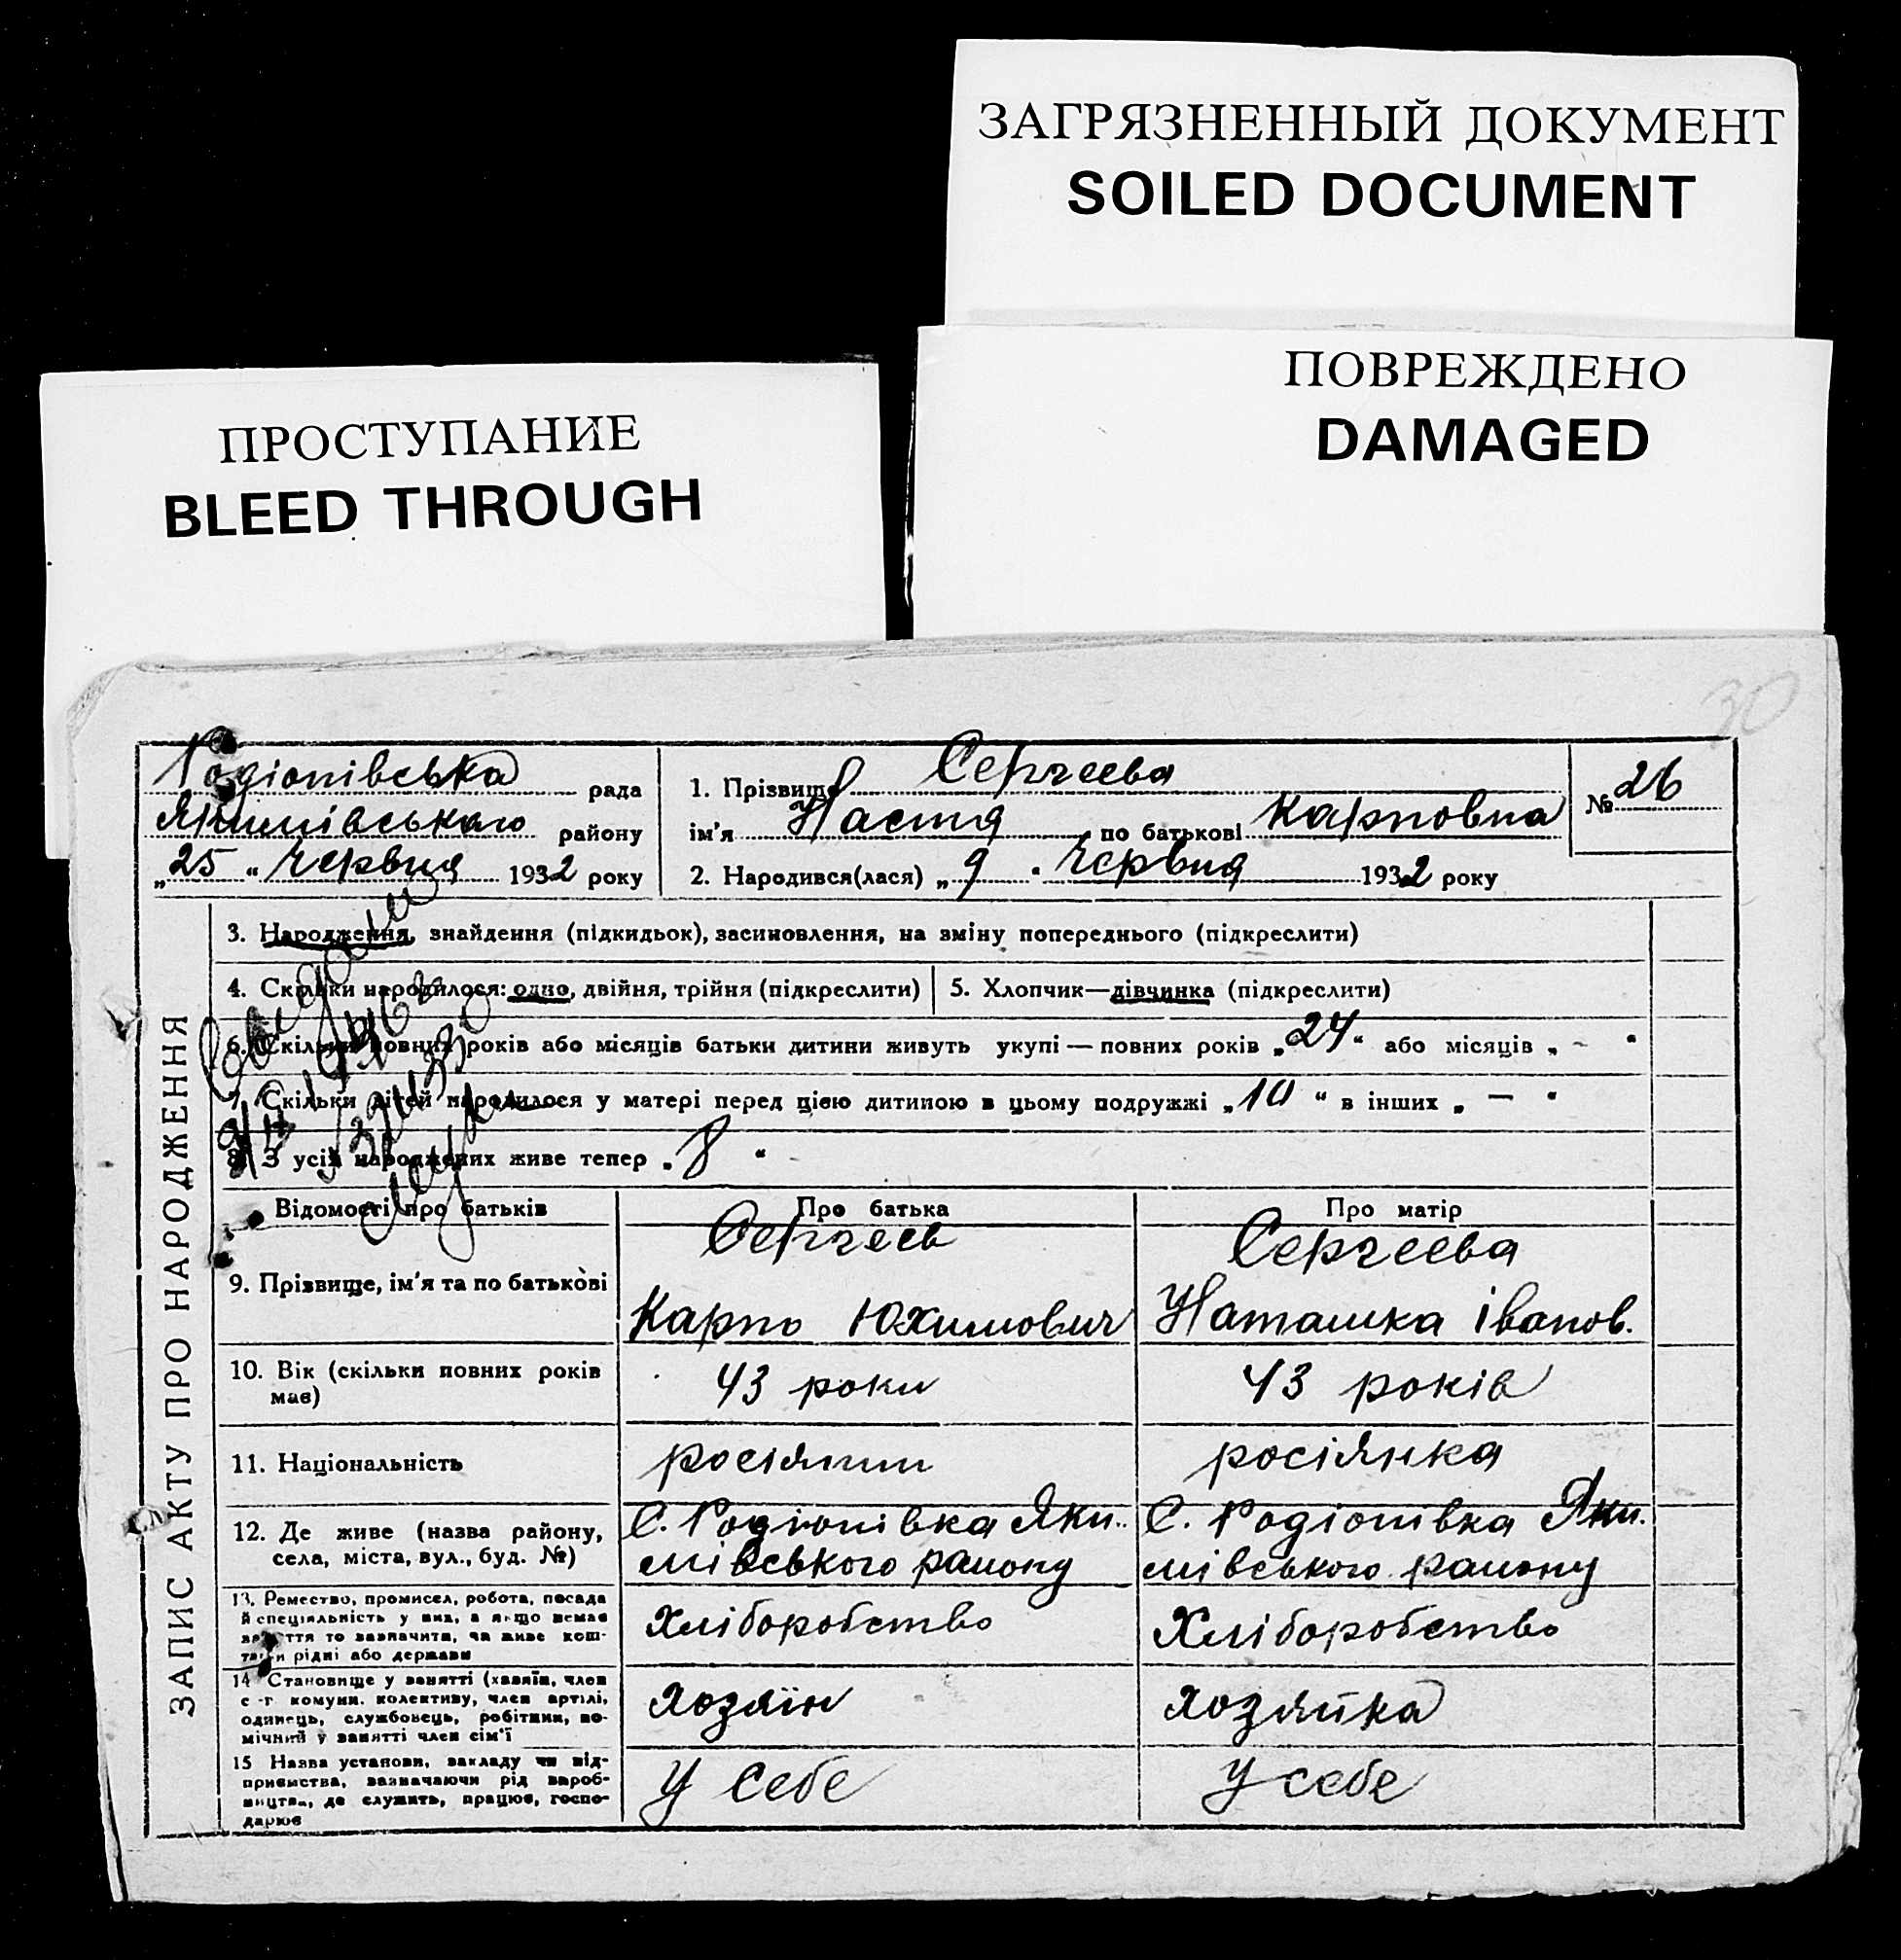 ЗАГРЯЗНЕННЫЙ ДОКУМЕНТ
SOILED DOCUMENT
ПОВРЕЖДЕНО
DAMAGED
ПРОСТУПАНИЕ
BLEED THROUGH
30
Родіонівська рада
Якимівського району
„25“ Червня 1932 року
1. Прізвище Сергеева
ім'я Настя по батькові Карповна
2. Народився(лася) „9“ Червня 1932 року
№ 26
ЗАПИС АКТУ ПРО НАРОДЖЕННЯ
3. Народження, знайдення (підкидьок), засиновлення, на зміну попереднього (підкреслити)
4. Скільки народилося: одно, двійня, трійня (підкреслити)
5. Хлопчик—дівчинка (підкреслити)
6. Скільки повних років або місяців батьки дитини живуть укупі — повних років „24“ або місяців „ – “
7. Скільки дітей народилося у матері перед цією дитиною в цьому подружжі „10“ в інших „ — “
8. З усіх народжених живе тепер „8“
Відомості про батьків
Про батька
Про матір
9. Прізвище, ім'я та по батькові
Сергеев
Карпо Юхимович
Сергеева
Наташка Іванов.
10. Вік (скільки повних років має)
43 роки
43 років
11. Національність
росіянин
росіянка
12. Де живе (назва району,
села, міста, вул., буд. №)
С. Родіонівка Яки-
мівського району
С. Родіонівка Яки.
мівського району
13. Ремество, промисел, робота, посада
й спеціяльність у них, а якщо немає
заняття то зазначити, чи живе кош-
тами рідні або держави
Хліборобство
Хліборобство
14 Становище у занятті (хазяїн, член
с -г комуни. колективу, член артілі,
одинець, службовець, робітник, по-
мічний у занятті член сім'ї
хозяїн
хозяйка
15 Назва установи, закладу чи під-
приємства, зазначаючи рід вироб-
ництва, де служить, працює, госпо-
дарює
У себе
У себе